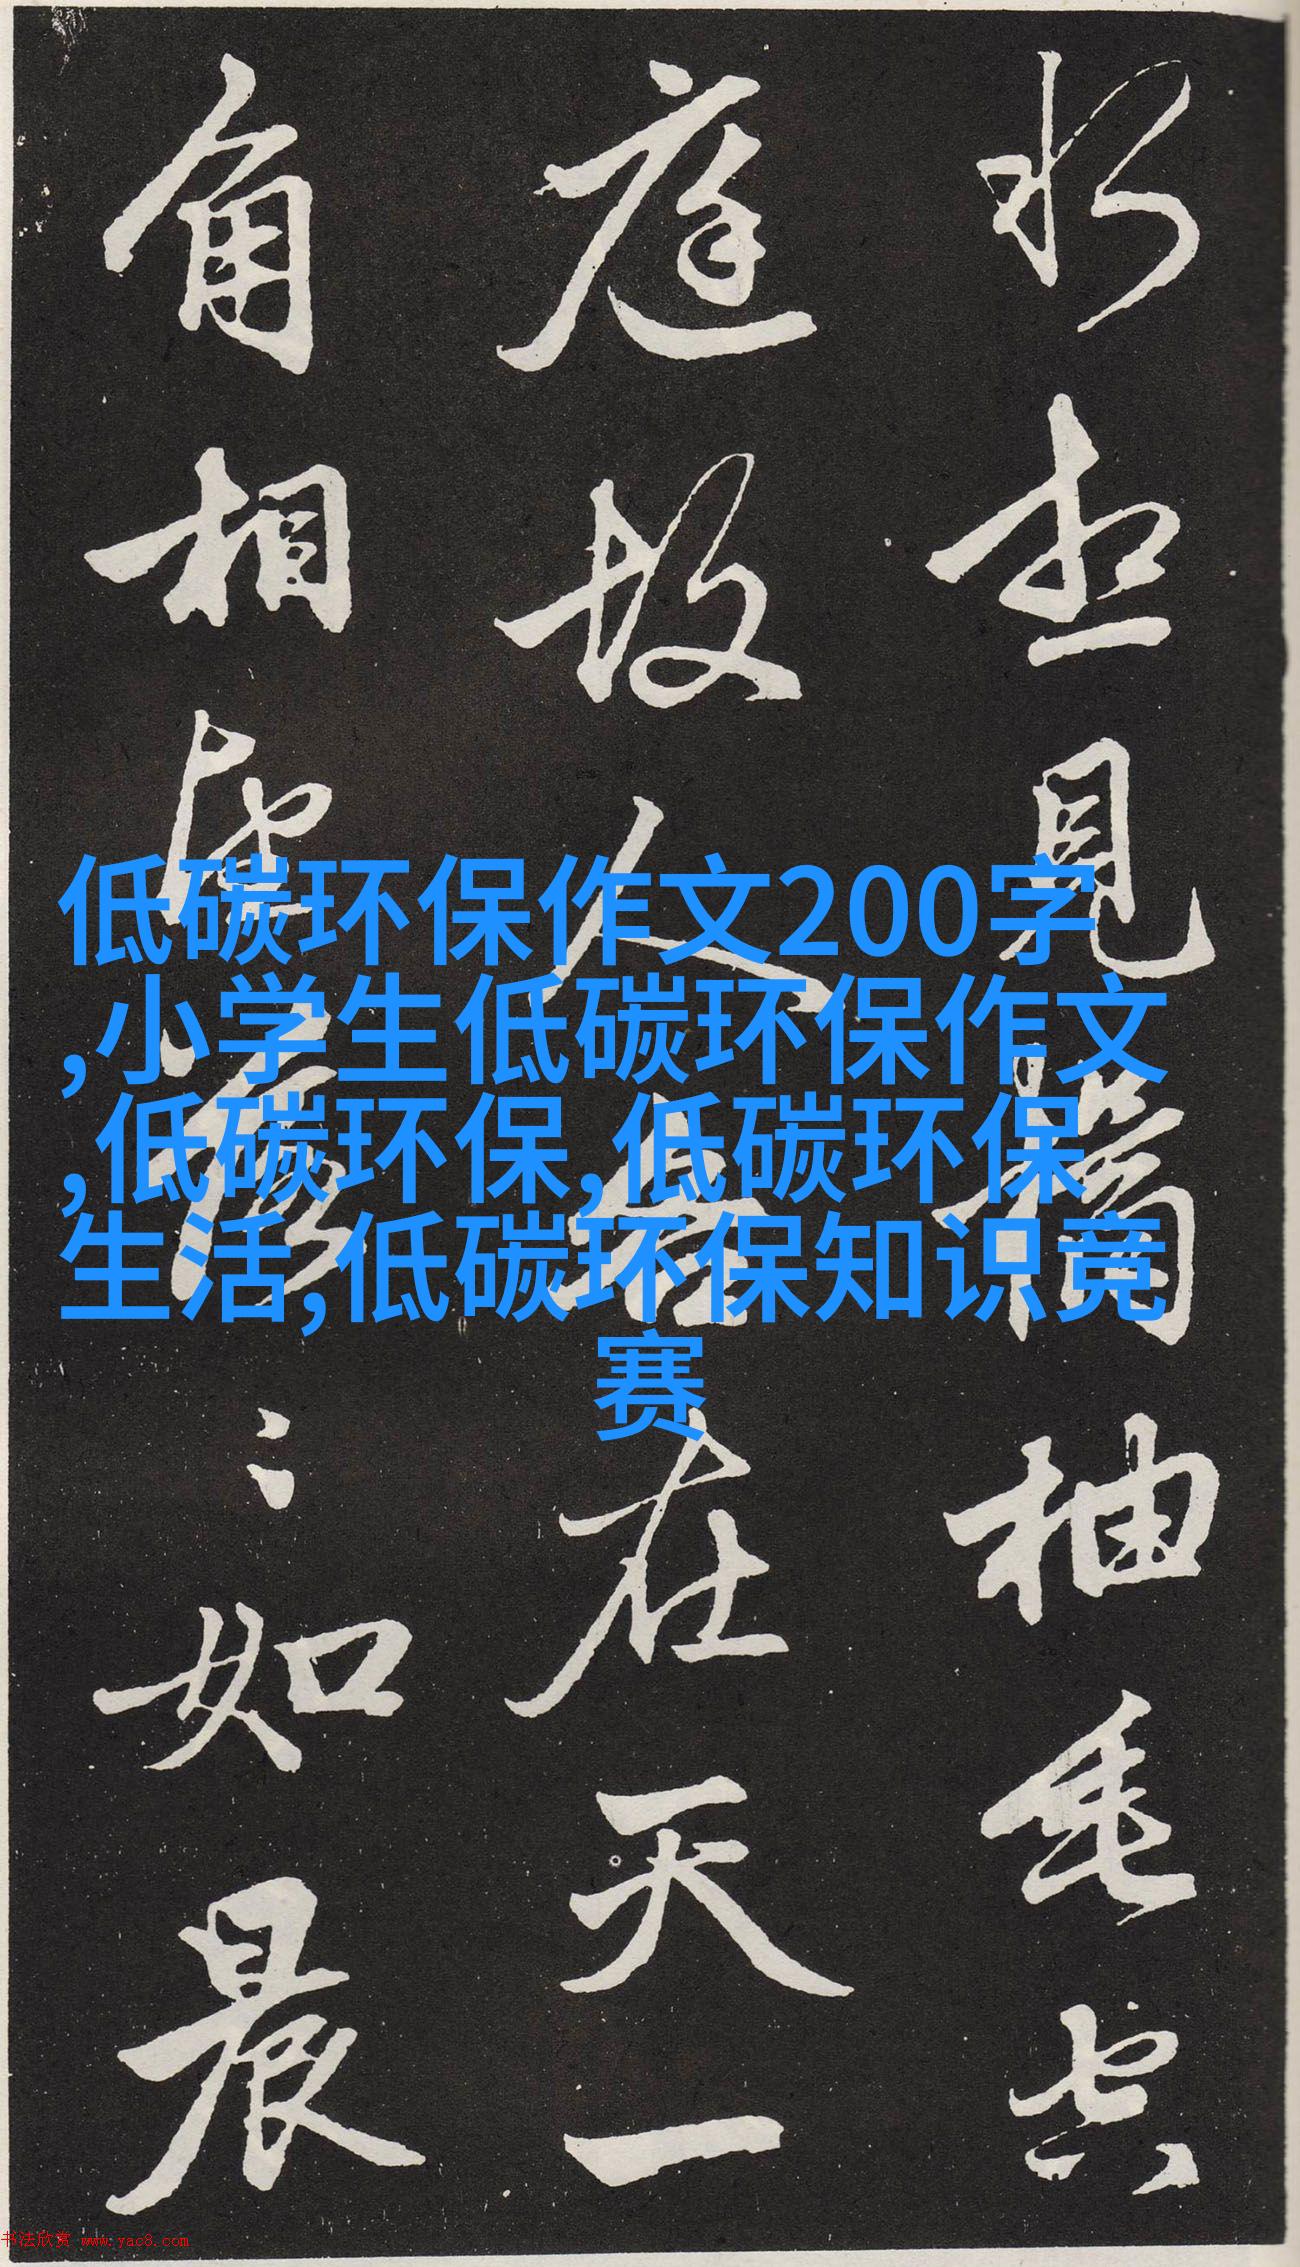 想見橘柚垂空
庭故人各在天一
角相望落〻如晨
低碳环保作文200字
,小学生低碳环保作文
,低碳环保,低碳环保
生活,低碳环保知识竞
赛
书法欣赏 www.yac8.com